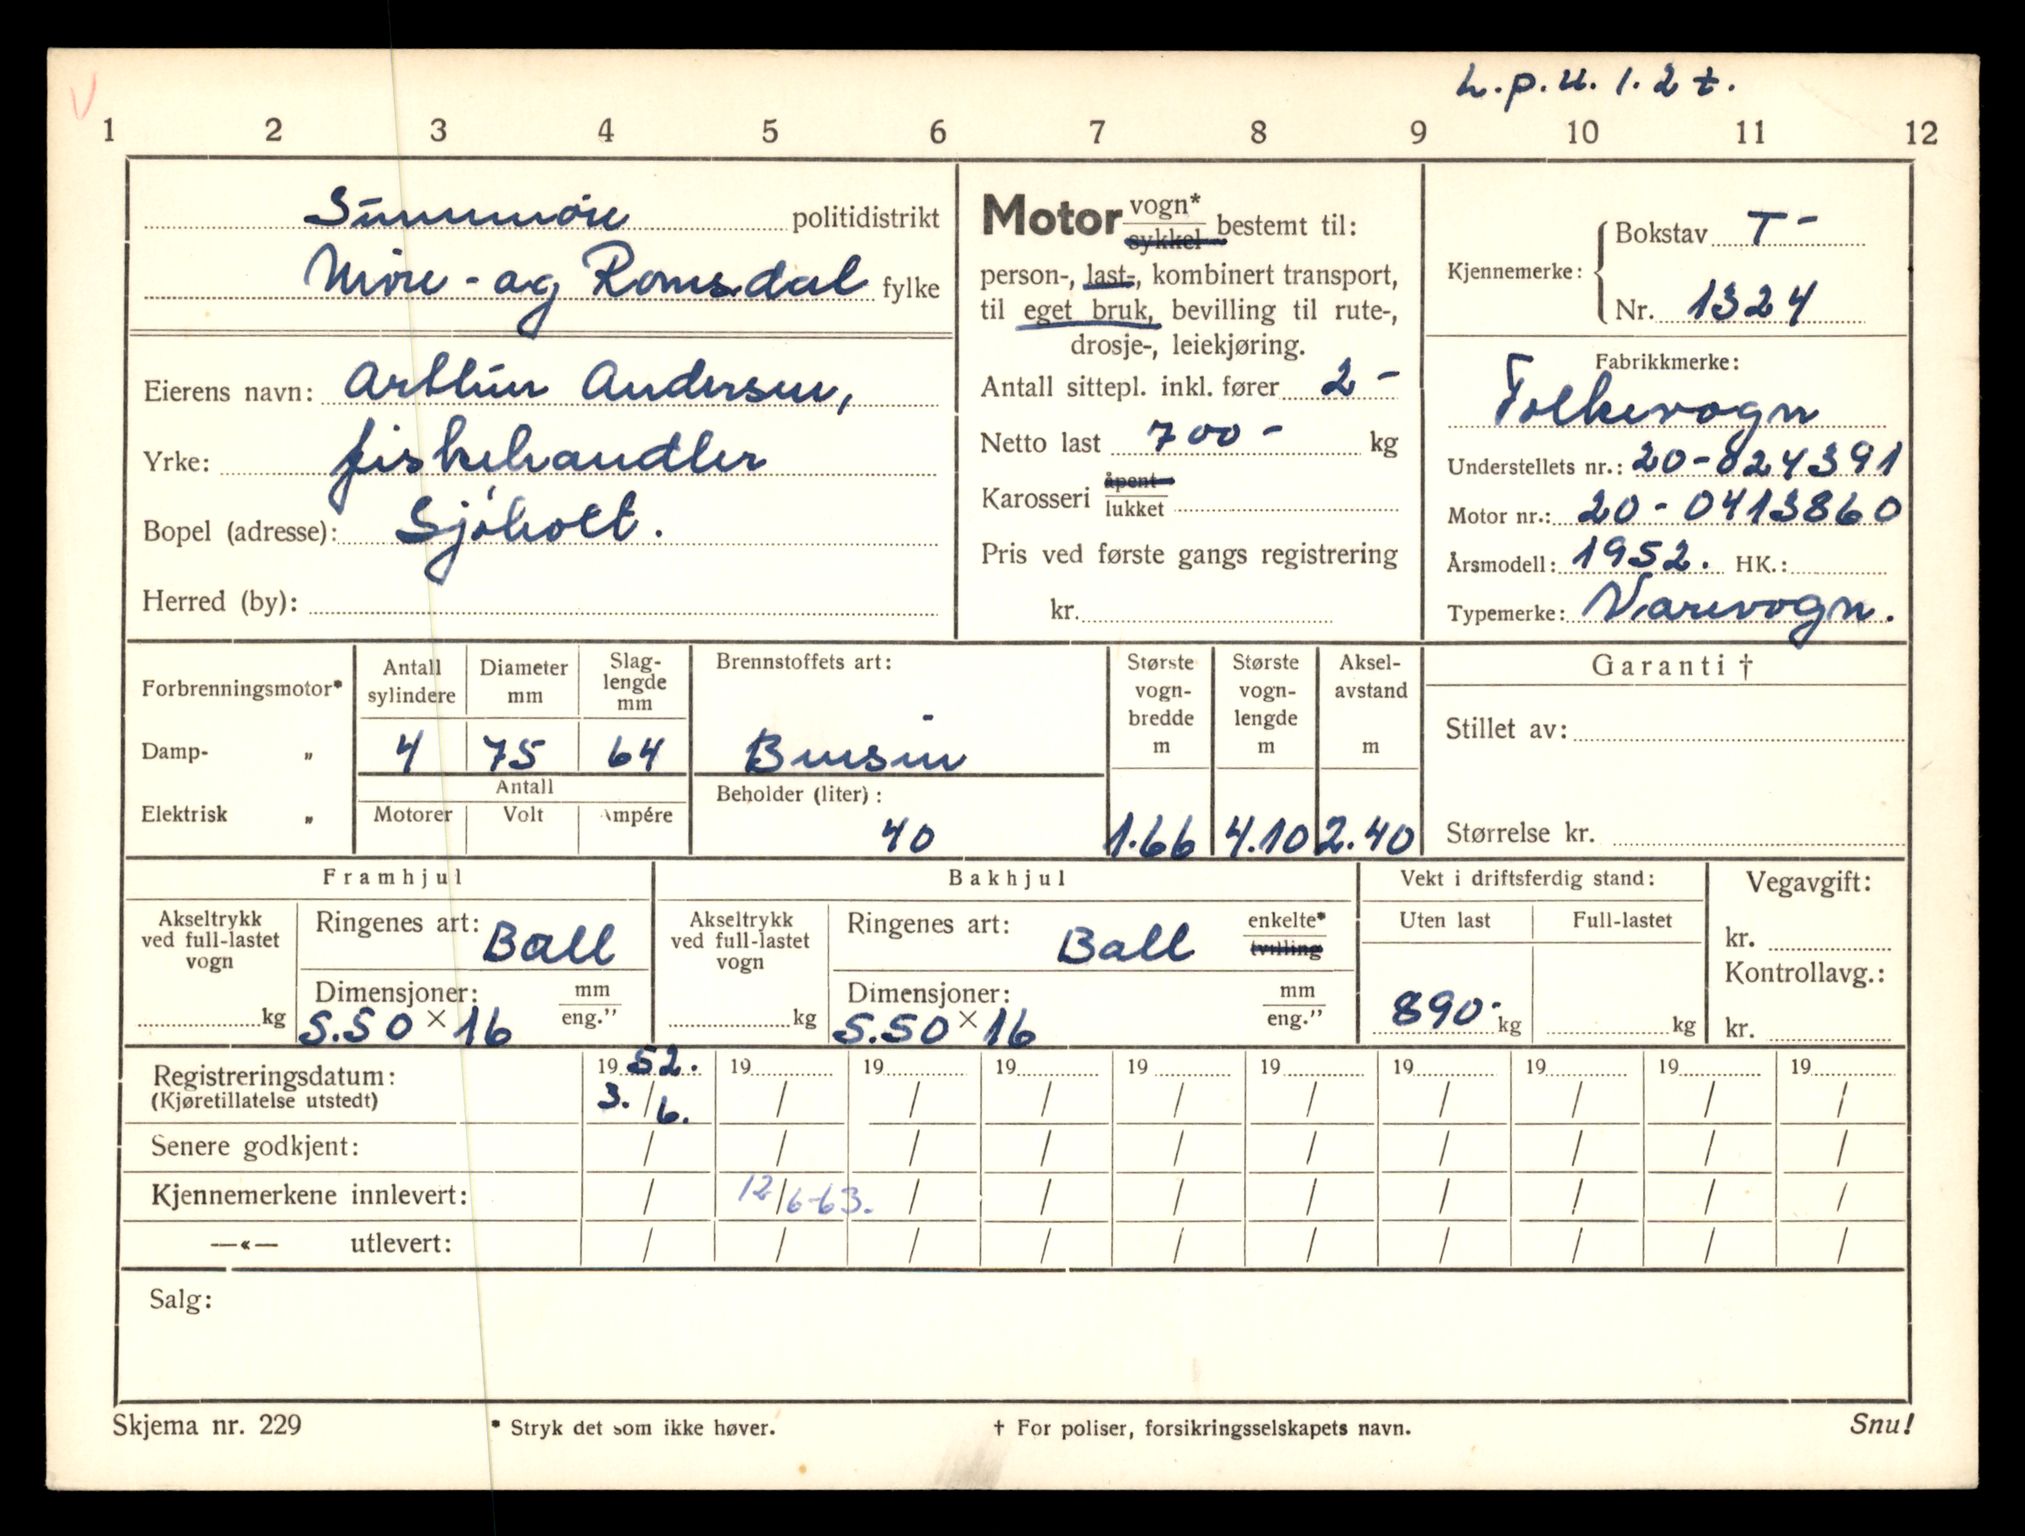 L.p.u. 1.2 t.
1 2 3 4 5 6 7 8 9 10 11 12
Sunnmöre politidistrikt
Möre - og Romsdal fylke
Eierens navn: Arthur Andersen,
Yrke: fiskehandler
Bopel (adresse): Sjöholt.
Herred (by):
Motor vogn* sykkel bestemt til:
person-, last-, kombinert transport,
til eget bruk, bevilling til rute-,
drosje-, leiekjøring.
Antall sittepl. inkl. fører 2 -
Netto last 700 - kg
Karosseri åpent lukket
Pris ved første gangs registrering
kr.
Kjennemerke: Bokstav T -
Nr. 1324
Fabrikkmerke:
Folkevogn
Understellets nr.: 20-024391
Motor nr.: 20-0413860
Årsmodell: 1952. HK.:
Typemerke: Varevogn.
Forbrenningsmotor*
Damp- „
Elektrisk „
Antall sylindere
Diameter mm
Slag-
lengde
mm
4 75 64
Antall
Motorer Volt Ampére
Brennstoffets art:
Bensin
Beholder (liter):
40
Største
vogn-
bredde
m
1.66
Største
vogn-
lengde
m
4.10
Aksel-
avstand
m
2.40
Garanti †
Stillet av:
Størrelse kr.
Framhjul
Akseltrykk
ved full-lastet
vogn
kg
Ringenes art: Ball
Dimensjoner: mm eng.”
5.50 × 16
Bakhjul
Akseltrykk
ved full-lastet
vogn
kg
Ringenes art: Ball enkelte* tvilling
Dimensjoner: mm eng.”
5.50 × 16
Vekt i driftsferdig stand:
Uten last Full-lastet
890- kg kg
Vegavgift:
kr.
Kontrollavg.:
kr.
Registreringsdatum: 19 52. 19 19 19 19 19 19 19 19 19
(Kjøretillatelse utstedt) 3. / 6. / / / / / / / / /
Senere godkjent: / / / / / / / / / /
Kjennemerkene innlevert: / 12/6-63. / / / / / / / /
—«— utlevert: / / / / / / / / / /
Salg:
Skjema nr. 229 * Stryk det som ikke høver. † For poliser, forsikringsselskapets navn. Snu!
V